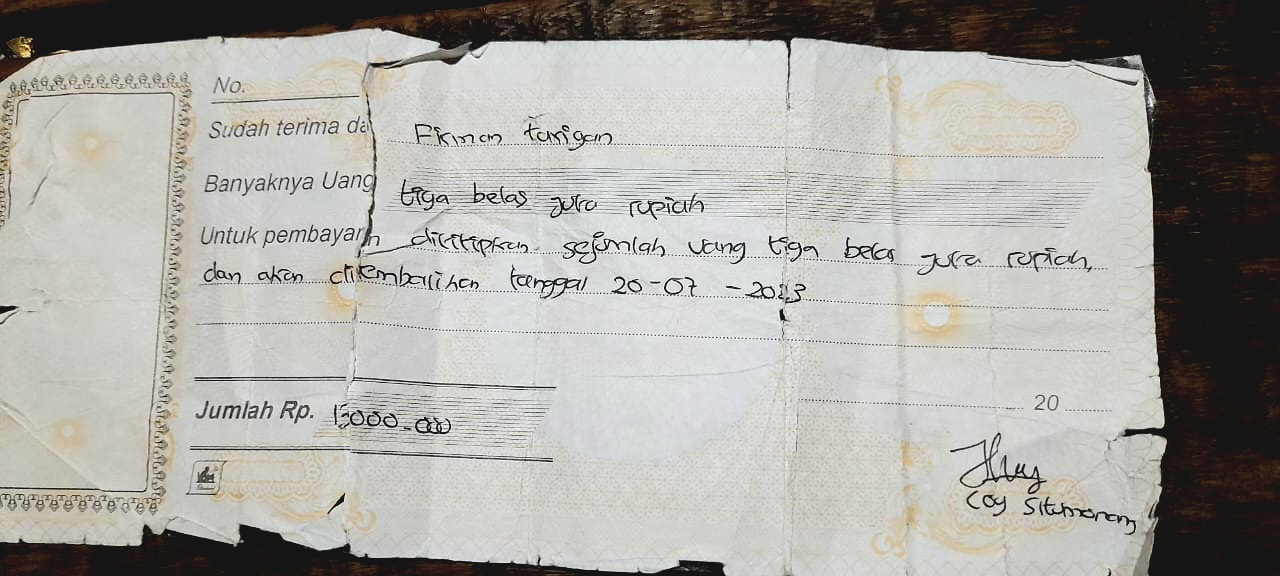 No.
Sudah terima da Firman tarigan
Banyaknya Uang tiga belas juta rupiah
Untuk pembayaran dititipkan sejumlah uang tiga belas juta rupiah,
dan akan dikembalikan tanggal 20-07-2023
20
Jumlah Rp. 13000.000
Coy Situmorang